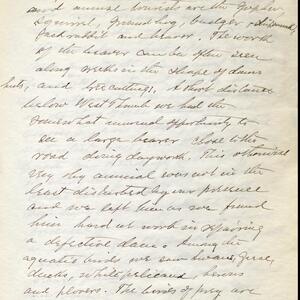 and animal burrows are the gopher,
Squirrel, groundhog, badger & chipmunk,
jackrabbit and beaver. The work
of the beaver can be often seen
along creeks in the shape of dams
huts, and tree cuttings. A short distance
below West Thumb we had the
somewhat unusual opportunity to
see a large beaver close to the
road doing day work. This otherwise
very shy animal was not in the
least disturbed by our presence
and we left him as we found
him hard at work in repairing
a defective dam. Among the
aquatic birds we saw swans, geese,
ducks, white pelicans, herons
and plovers. The birds of prey are